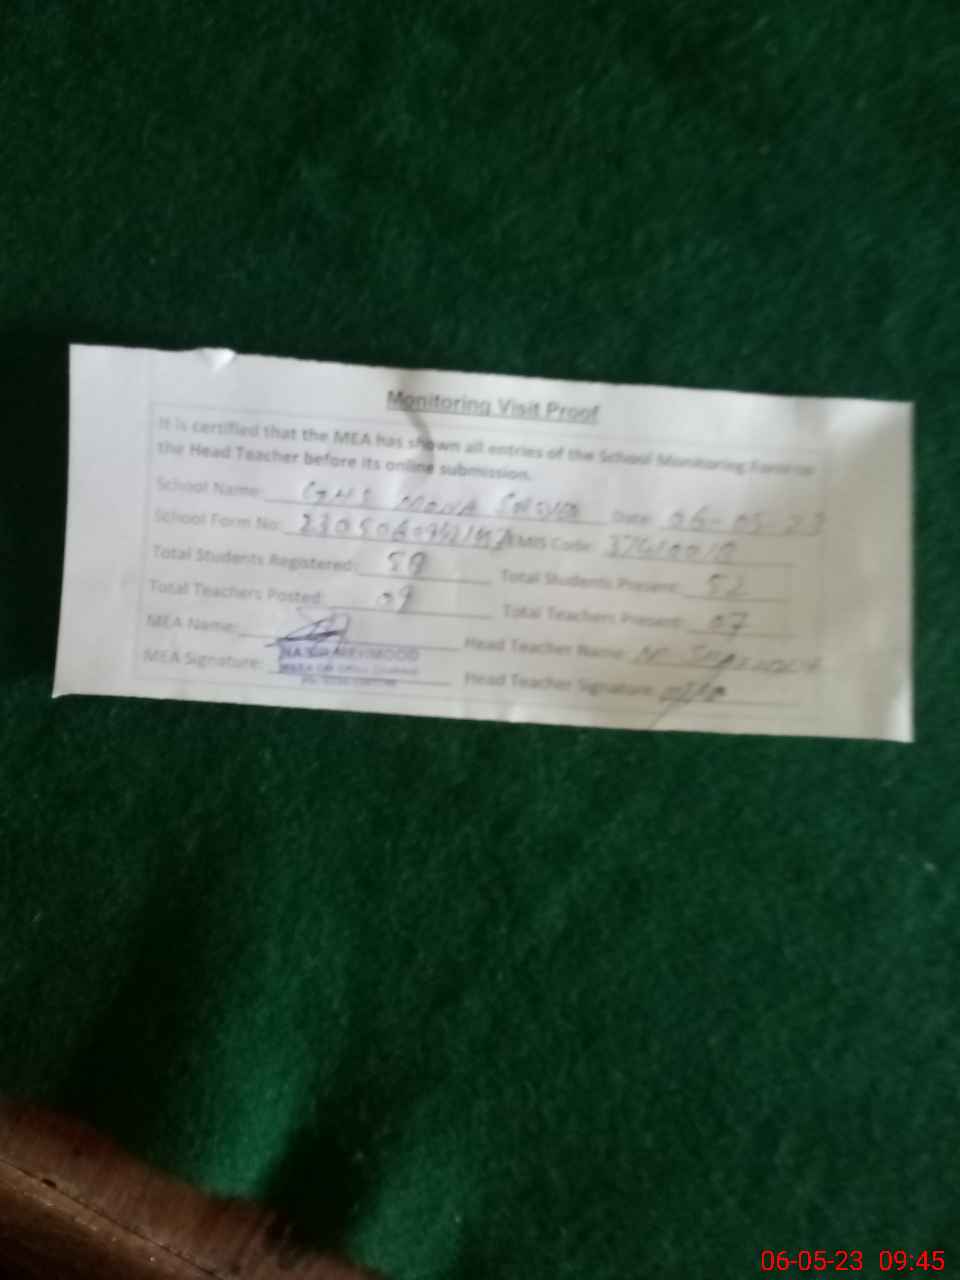 Monitoring Visit Proof
It is certified that the MEA has shown all entries of the School Monitoring Form to
the Head Teacher before its online submission.
School Name: GHS MONA Date: 06-05-23
School Form No: EMIS Code:
Total Students Registered: 59 Total Students Present: 52
Total Teachers Posted: 09 Total Teachers Present: 07
MEA Name: Head Teacher Name:
MEA Signature: Head Teacher Signature:
06-05-23 09:45